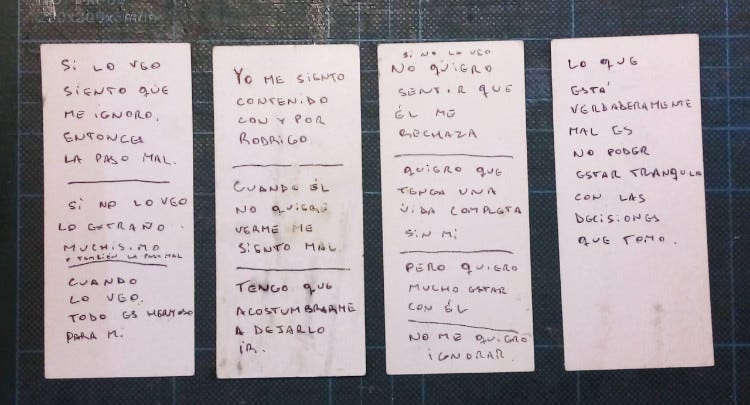 SI LO VEO
SIENTO QUE
ME IGNORO,
ENTONCES
LA PASO MAL.
SI NO LO VEO
LO EXTRAÑO.
MUCHISIMO
Y TAMBIÉN LA PASO MAL
CUANDO
LO VEO.
TODO ES HERMOSO
PARA MI
YO ME SIENTO
CONTENIDO
CON Y POR
RODRIGO.
CUANDO ÉL
NO QUIERE
VERME ME
SIENTO MAL
TENGO QUE
ACOSTUMBRARME
A DEJARLO
IR.
SI NO LO VEO
NO QUIERO
SENTIR QUE
ÉL ME
RECHAZA
QUIERO QUE
TENGA UNA
VIDA COMPLETA
SIN MÍ
PERO QUIERO
MUCHO ESTAR
CON ÉL
NO ME QUIERO
IGNORAR.
LO QUE
ESTÁ
VERDADERAMENTE
MAL ES
NO PODER
ESTAR TRANQUILA
CON LAS
DECISIONES
QUE TOMO.